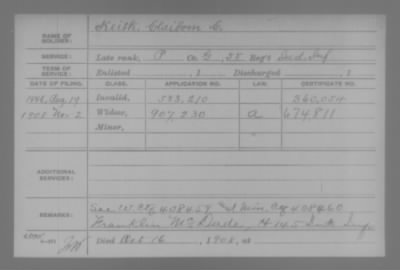 NAME OF SOLDIER: Keith, Claibom C.
SERVICE: Late rank, P Co. G, 58 Reg't Ind. Inf
TERM OF SERVICE: Enlisted , 1 Discharged , 1
DATE OF FILING. CLASS. APPLICATION NO. LAW. CERTIFICATE NO.
1886, Aug 19 Invalid, 583,210 360,054
1908 Nov 2 Widow, 907,230 a 674,811
Minor,
ADDITIONAL SERVICES:
REMARKS: See W. Ctf 408459 Min. Ctf 408460
Franklin H 145 Ind. Inf
Died Oct 16, 1908, at